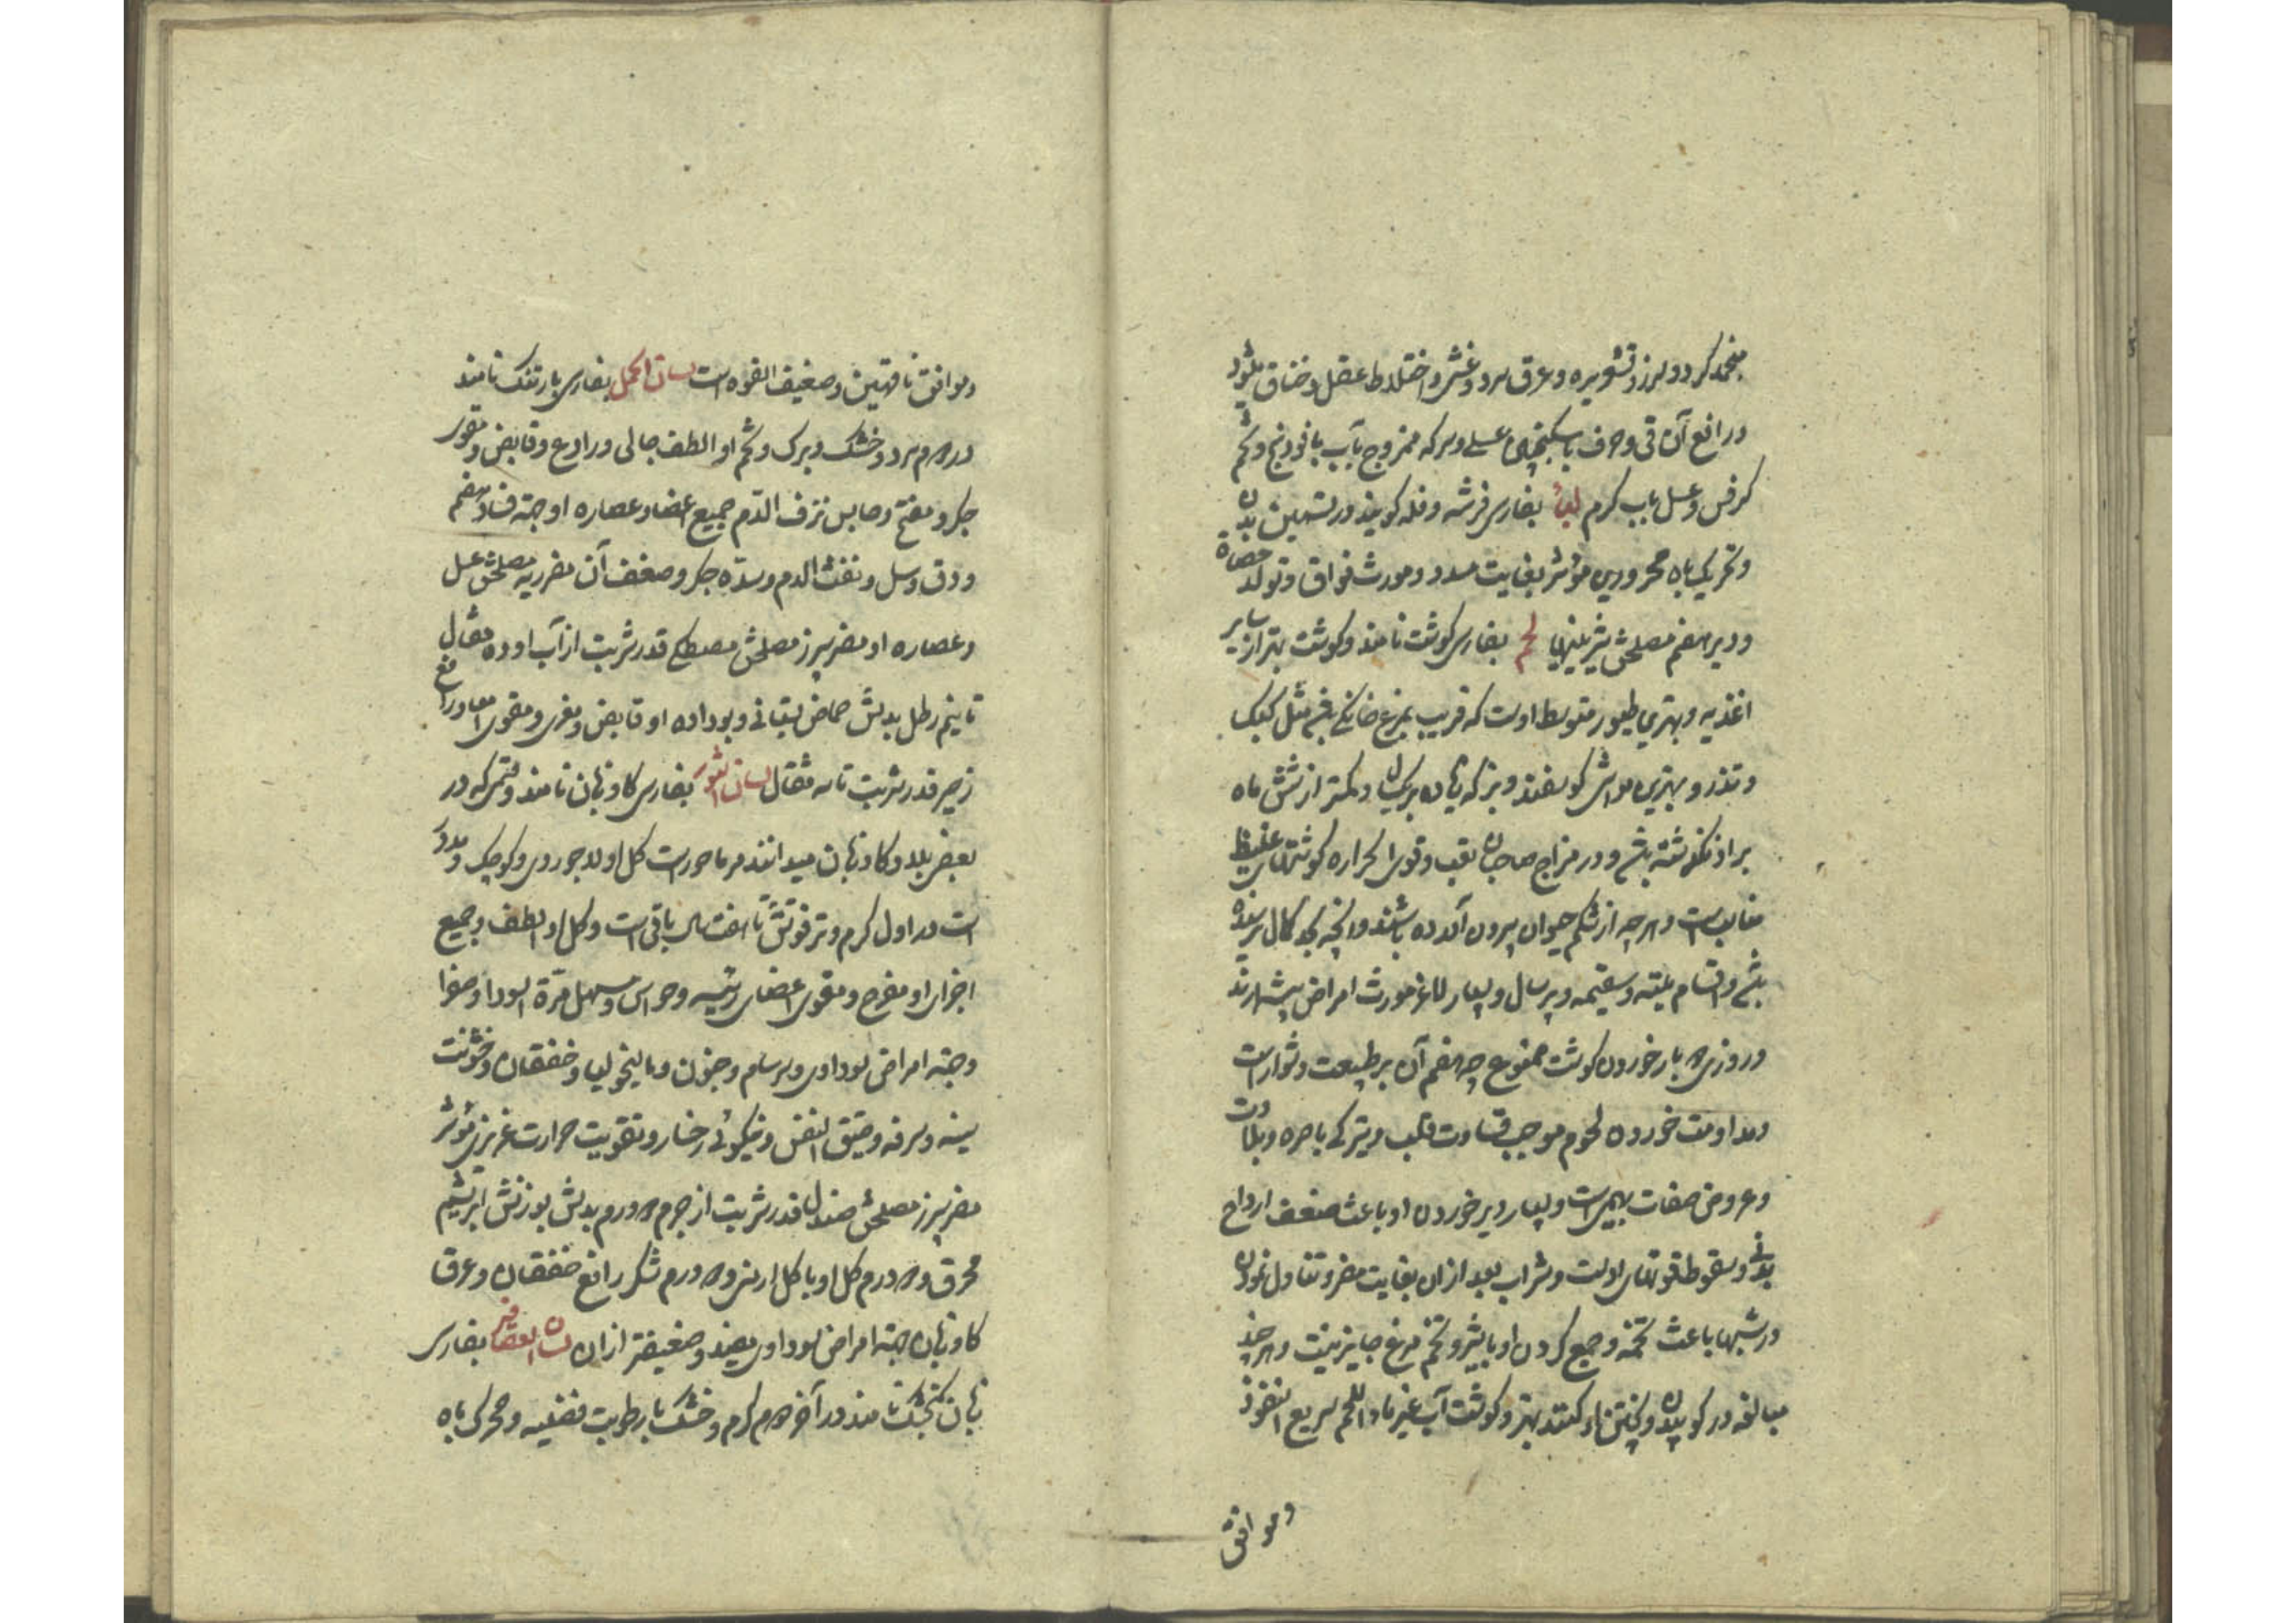 منجمد کردد و لرز و قشعریره و عرق سرد و غشی و اختلاط عقل و خناق بشود
و رافع آن قی و حرف با سکنجبین عسلی و سرکه ممزوج بآب با فودنج و تخم
کرفس و عسل بآب کرم لبأ بفارسی فرشه و فله کویند در تسمین بدن
و تحریک باه محرورین مؤثر بغایت مسدد و مورث فواق و تولد حصاة
و دیر هضم مصلحش شیرینیها لحم بفارسی کوشت نامند و کوشت بهتر از سایر
اغذیه و بهترین طیور متوسط اوست که قریب بمرغ خانکی باشد مثل کبک
و تذرو و بهترین مواشی کوسفند و بز که زیاده بر یکسال و کمتر از شش ماه
بر او نکذشته باشد و در مزاج صاحبان تعب و قوی الحراره کوشتهای غلیظ
مناسبست و هرچه از شکم حیوان بیرون آمده باشند و آنچه بحد کمال نرسیده
باشد و اقسام میته و سقیمه و پیر سال و بسیار لاغر مورث امراض بیشمارند
در روزی دو بار خوردن کوشت ممنوع چه هضم آن بر طبیعت دشوار است
و مداومت خوردن لحوم موجب قساوت قلب و تیرکی باصره و بلادت
و عروض صفات بهیمیست و بسیار دیر خوردن او باعث ضعف ارواح
بدنی و سقوط قوتهای اوست و شراب بعد از ان بغایت مضر و تناول نمودن
در شبها باعث تخمه و جمع کردن او با شیر و تخم مرغ جایز نیست و هرچند
مبالغه در کوبیدن و پختن ناء کنند بهتر و کوشت آب غیر ماء اللحم سریع النفوذ
و موافق
و موافق ناقهین و ضعیف القوه است لسان الحمل بفارسی بارتنک نامند
در دوم سرد و خشک و برک و تخم او الطف جالی و رادع و قابض و مقوی
جکر و مفتح و حابس نزف الدم جمیع اعضا و عصاره او جهة فساد هضم
و دق و سل و نفث الدم و سده جکر و ضعف آن مضر ریه مصلحش عسل
و عصاره او مضر سپرز مصلحش مصطکی قدر شربت از آب او ده مثقال
تا نیم رطل بدلش حماض بستانی و بو داده او قابض و مغری و مقوی امعا و رافع
زحیر قدر شربت تا سه مثقال لسان الثور بفارسی کاو زبان نامند و قسمی که در
بعض بلاد کاو زبان میدانند مرماحوز است کل او لاجوردی و کوچک و مدور
است در اول کرم و تر قوتش تا هفت سال باقی است و کل او الطف و جمیع
اجزای او مفرح و مقوی اعضای رئیسه و حواس و مسهل مرة السودا و صفرا
و جهة امراض سوداوی و سرسام و جنون و مالیخولیا و خفقان و خشونت
سینه و سرفه و ضیق النفس و نیکوئی رخسار و تقویت حرارت غریزی مؤثر
مضر سپرز مصلحش صندل قدر شربت از جرم دو درم بدلش بوزنش ابریشم
محرق و دو درم کل او با کل ارمنی و دو درم شکر رافع خفقان و عرق
کاو زبان جهة امراض سوداوی مفید و ضعیفتر از ان لسان العصافیر بفارسی
زبان کنجشک نامند در آخر دوم کرم و خشک با رطوبت فضلیه و محرک باه